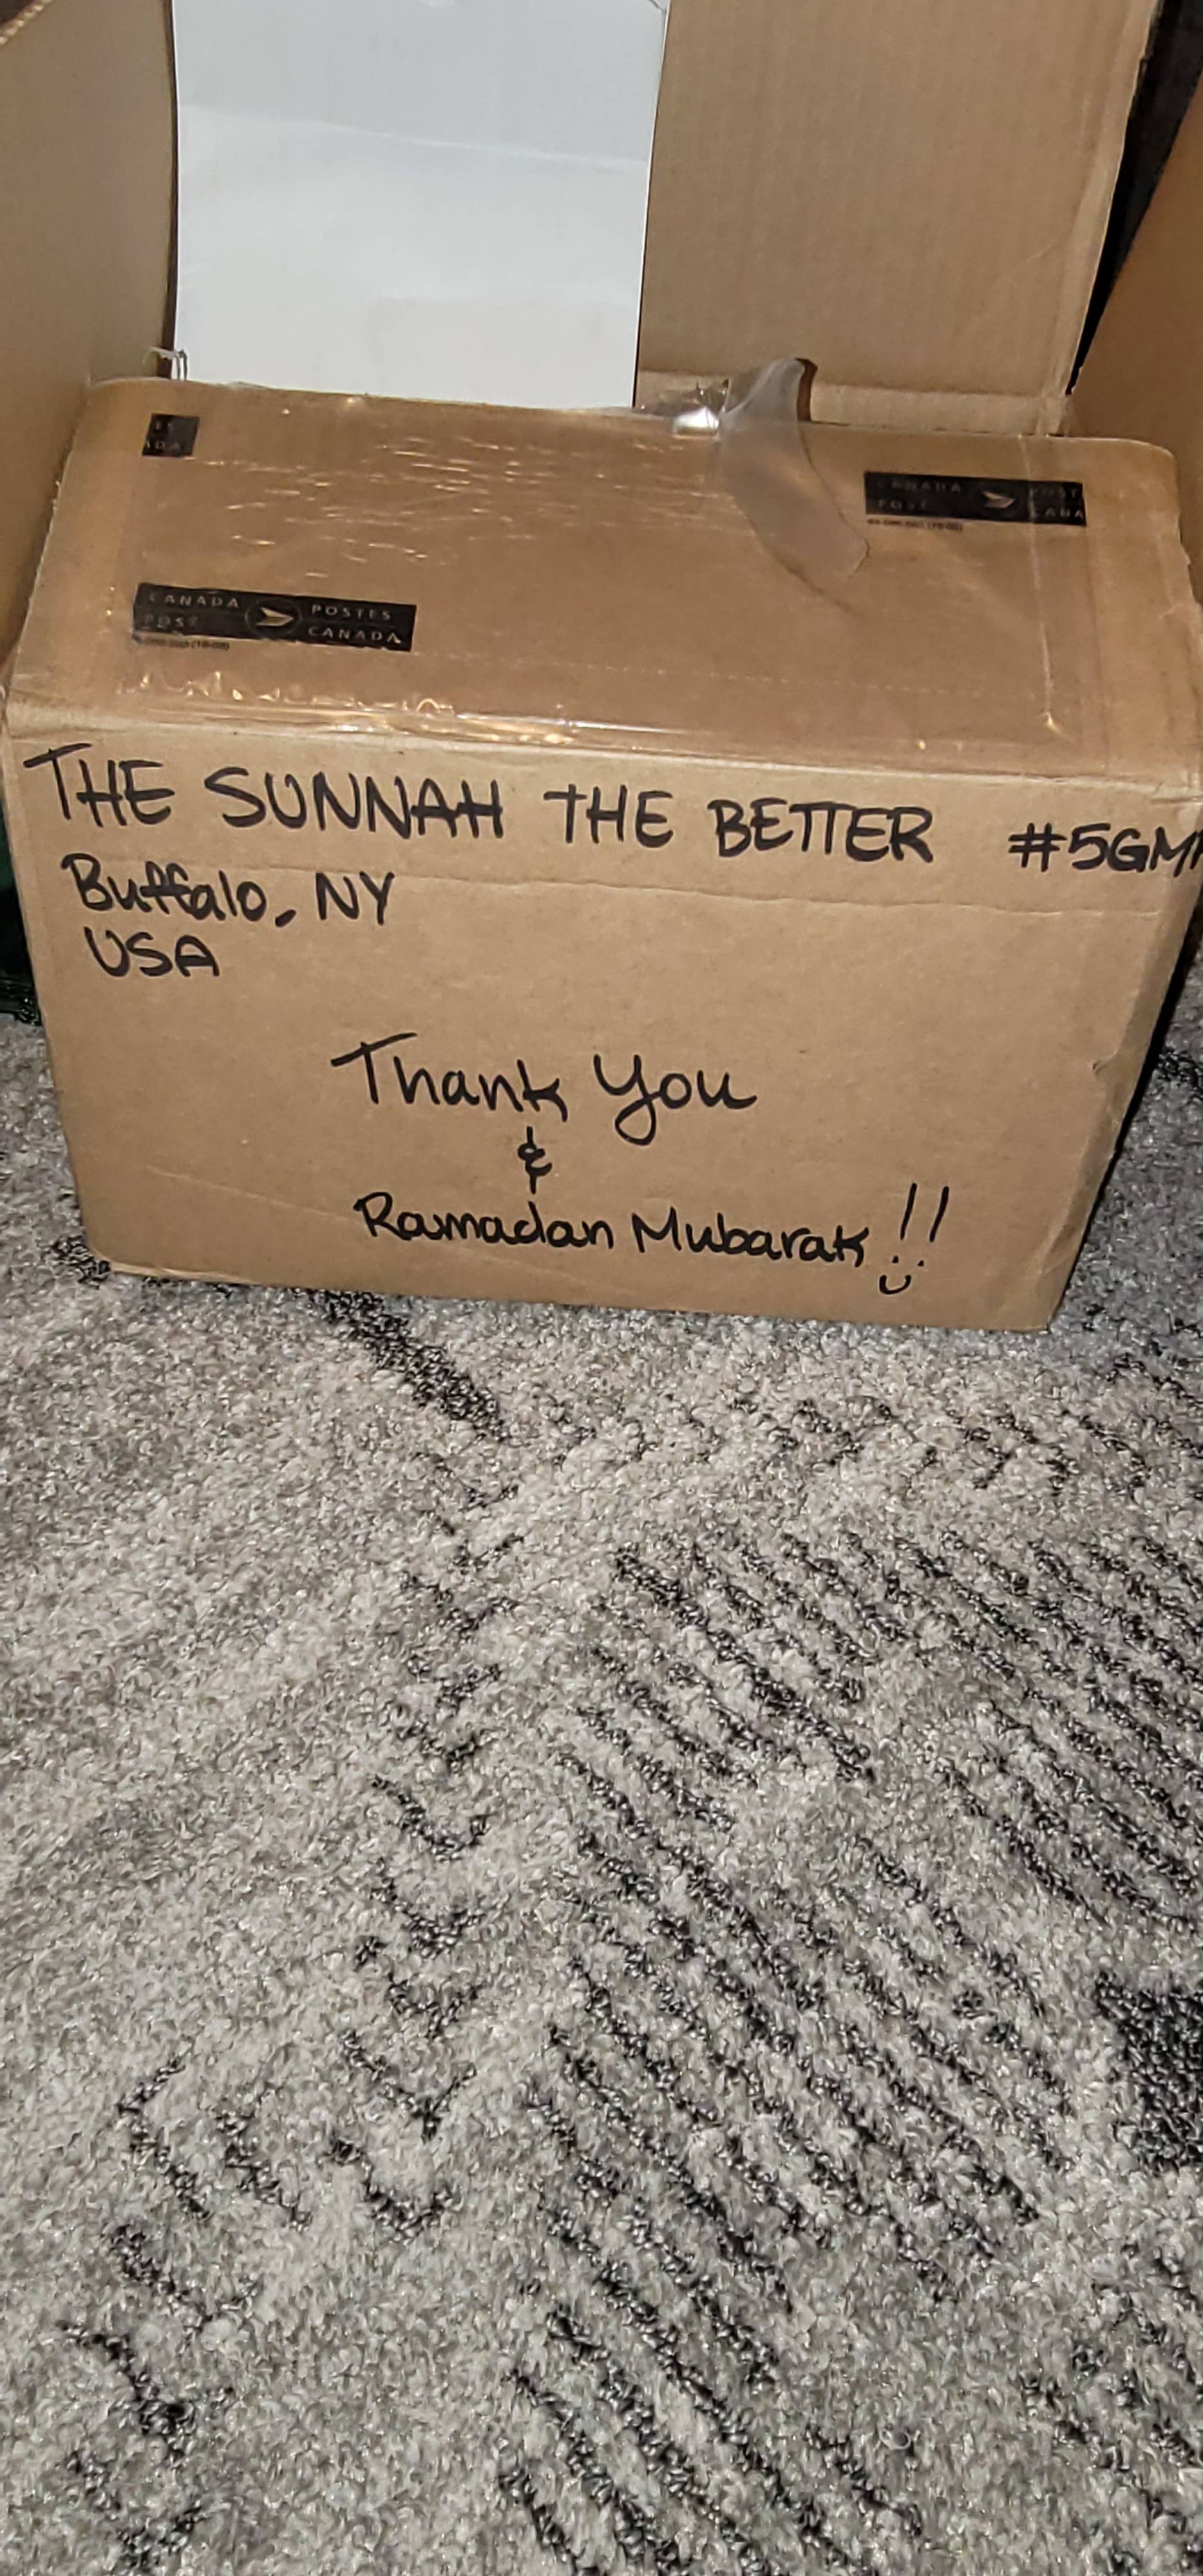 CANADA POST POSTES CANADA
CANADA POST POST CANA
THE SUNNAH THE BETTER
Buffalo, NY
USA
Thank You
&
Ramadan Mubarak !!